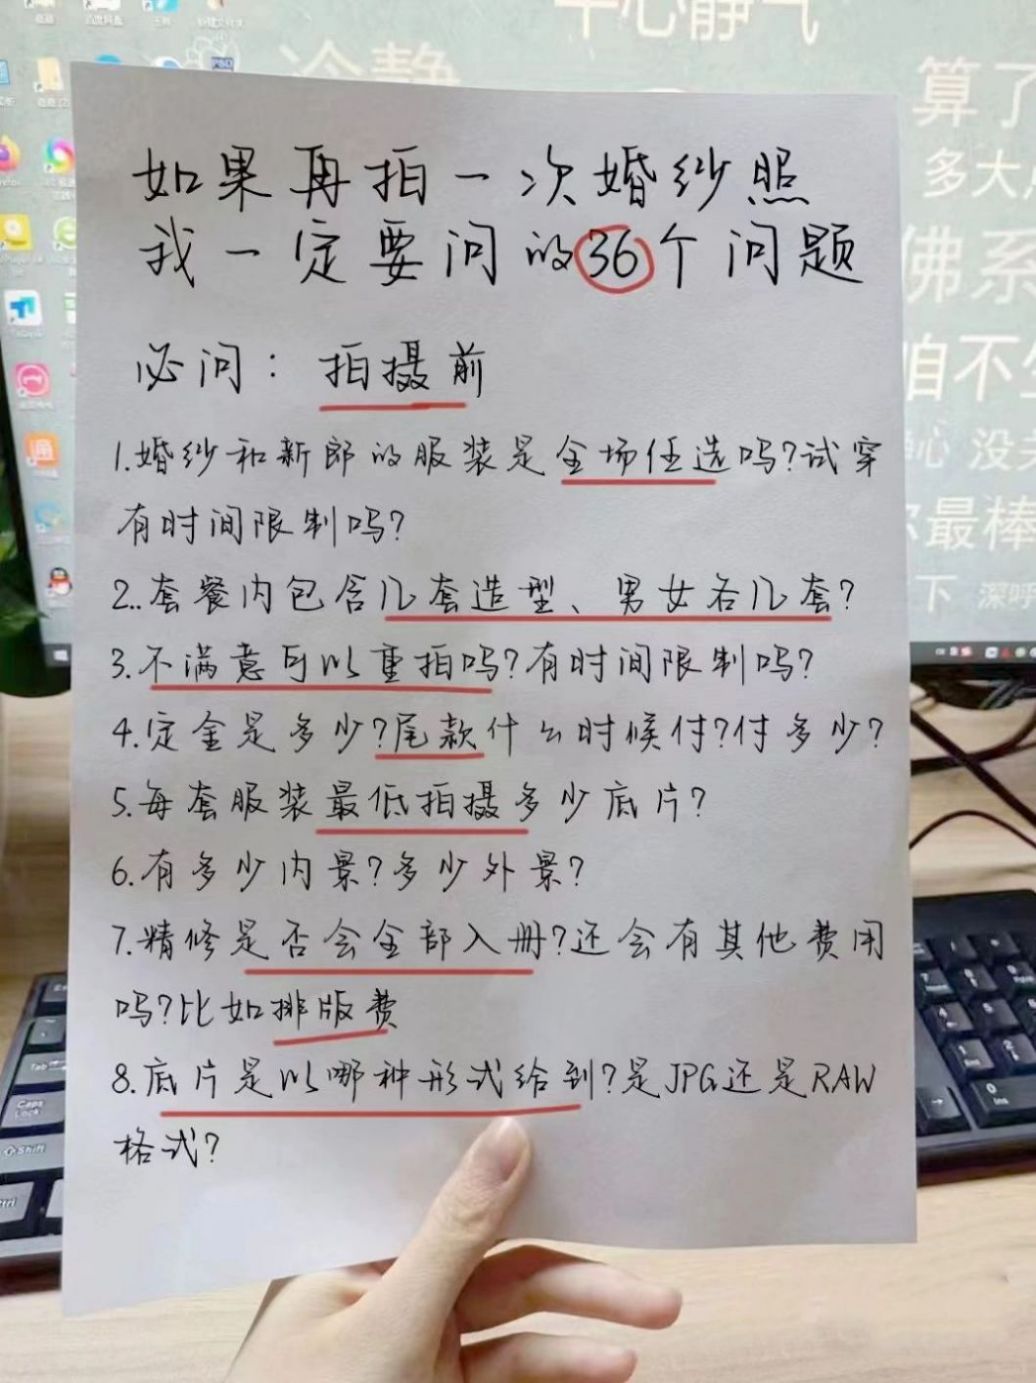 平心静气
冷静
算了
多大
佛系
咱不
心 没
最棒
下 深呼
如果再拍一次婚纱照
我一定要问的36个问题
必问：拍摄前
1.婚纱和新郎的服装是全场任选吗?试穿
有时间限制吗?
2..套餐内包含几套造型、男女各几套?
3.不满意可以重拍吗?有时间限制吗?
4.定金是多少?尾款什么时候付?付多少?
5.每套服装最低拍摄多少底片?
6.有多少内景?多少外景?
7.精修是否会全部入册?还会有其他费用
吗?比如排版费
8.底片是以哪种形式给到?是JPG还是RAW
格式?
Tab
Caps
Lock
Shift
Ins